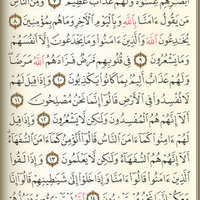 أَبْصَٰرِهِمْ غِشَٰوَةٌ وَلَهُمْ عَذَابٌ عَظِيمٌ ٧ وَمِنَ ٱلنَّاسِ
مَن يَقُولُ ءَامَنَّا بِٱللَّهِ وَبِٱلْيَوْمِ ٱلْءَاخِرِ وَمَا هُم بِمُؤْمِنِينَ ٨
يُخَٰدِعُونَ ٱللَّهَ وَٱلَّذِينَ ءَامَنُوا۟ وَمَا يَخْدَعُونَ إِلَّآ أَنفُسَهُمْ
وَمَا يَشْعُرُونَ ٩ فِى قُلُوبِهِم مَّرَضٌ فَزَادَهُمُ ٱللَّهُ مَرَضًا
وَلَهُمْ عَذَابٌ أَلِيمٌۢ بِمَا كَانُوا۟ يَكْذِبُونَ ١٠ وَإِذَا قِيلَ لَهُمْ
لَا تُفْسِدُوا۟ فِى ٱلْأَرْضِ قَالُوٓا۟ إِنَّمَا نَحْنُ مُصْلِحُونَ ١١
أَلَآ إِنَّهُمْ هُمُ ٱلْمُفْسِدُونَ وَلَٰكِن لَّا يَشْعُرُونَ ١٢ وَإِذَا قِيلَ
لَهُمْ ءَامِنُوا۟ كَمَآ ءَامَنَ ٱلنَّاسُ قَالُوٓا۟ أَنُؤْمِنُ كَمَآ ءَامَنَ ٱلسُّفَهَآءُ
أَلَآ إِنَّهُمْ هُمُ ٱلسُّفَهَآءُ وَلَٰكِن لَّا يَعْلَمُونَ ١٣ وَإِذَا لَقُوا۟
ٱلَّذِينَ ءَامَنُوا۟ قَالُوٓا۟ ءَامَنَّا وَإِذَا خَلَوْا۟ إِلَىٰ شَيَٰطِينِهِمْ قَالُوٓا۟
إِنَّا مَعَكُمْ إِنَّمَا نَحْنُ مُسْتَهْزِءُونَ ١٤ ٱللَّهُ